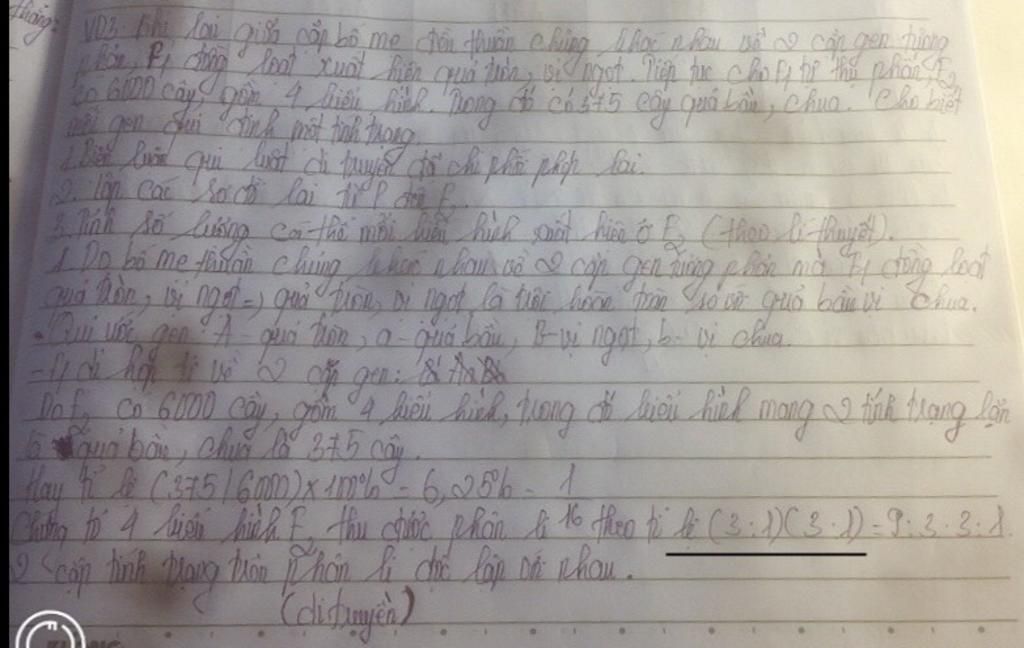 thắng?
VD3: Khi lai giữa cặp bố mẹ đều thuần chủng khác nhau về 2 cặp gen tương
phản, F1 đồng loạt xuất hiện quả tròn, vị ngọt. Tiếp tục cho F1 tự thụ phấn, F2
có 6000 cây, gồm 4 kiểu hình. Trong đó có 375 cây quả bầu, chua. Cho biết
mỗi gen qui định một tính trạng.
1. Biện luận qui luật di truyền đã chi phối phép lai.
2. Lập các sơ đồ lai từ P đến F2.
3. Tính số lượng cá thể mỗi kiểu hình xuất hiện ở F2 (theo lí thuyết).
1. Do bố mẹ thuần chủng khác nhau về 2 cặp gen tương phản mà F1 đồng loạt
quả tròn, vị ngọt => quả tròn, vị ngọt là trội hoàn toàn so với quả bầu vị chua.
- Qui ước gen A - quả tròn, a - quả bầu, B - vị ngọt, b - vị chua.
- F1 dị hợp tử về 2 cặp gen:
Do F2 có 6000 cây, gồm 4 kiểu hình, trong đó kiểu hình mang 2 tính trạng lặn
là quả bầu, chua là 375 cây.
Hay tỉ lệ (375/6000)×100% = 6,25% = 1
Chứng tỏ 4 kiểu hình F2 thu được phân li 16 theo tỉ lệ (3:1)(3:1) = 9:3:3:1.
2 cặp tính trạng trên phân li độc lập với nhau.
(di truyền)